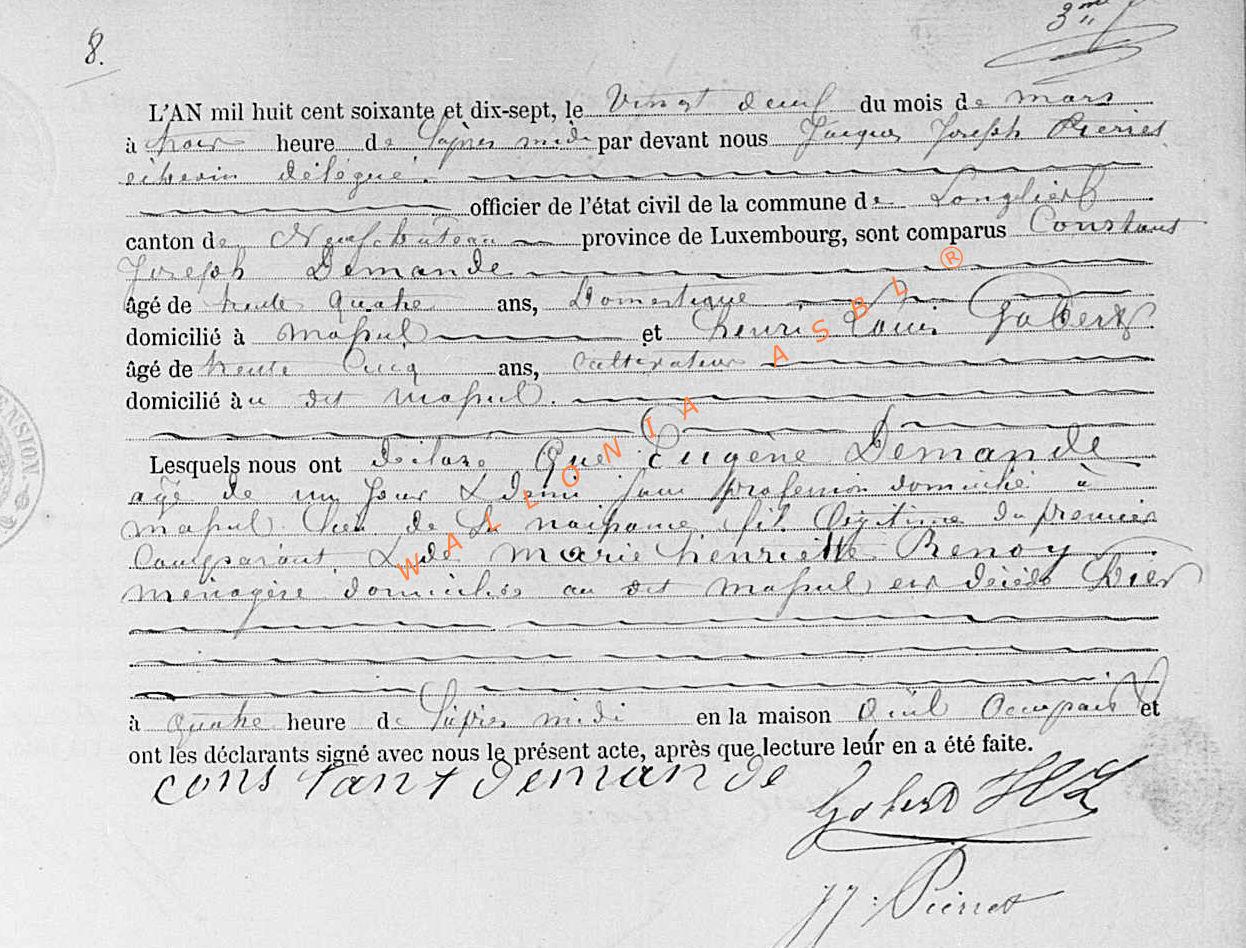 8.
3me
L'AN mil huit cent soixante et dix-sept, le Vingt deux du mois de mars
à trois heure de l'après midi par devant nous Jacques Joseph Pierret
échevin délégué.
officier de l'état civil de la commune de Longlier
canton de Neufchateau province de Luxembourg, sont comparus Constant
Joseph Demande
âgé de trente quatre ans, Domestique
domicilié à massul et henri Louis Gobert
âgé de trente Cinq ans, Cultivateur
domicilié au dit massul.
Lesquels nous ont déclaré Que Eugène Demande
agé de un jour & demi sans profession domicilié à
massul lieu de sa naissance fils légitime du premier
Comparant & de marie henriette Renoy
ménagère domiciliée au dit massul est décédé hier
à quatre heure de l'après midi en la maison Qu'il Occupait et
ont les déclarants signé avec nous le présent acte, après que lecture leur en a été faite.
constant demande
Gobert HL
JJ: Pierret
WALLONIA ASBL ®
ENSION